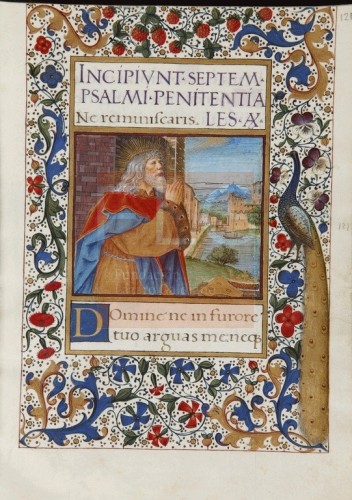 INCIPIVNT·SEPTEM·
PSALMI·PENITENTIA
Ne reminiscaris. LES·A͞.
Domine ne in furore
tuo arguas me: neq3
121